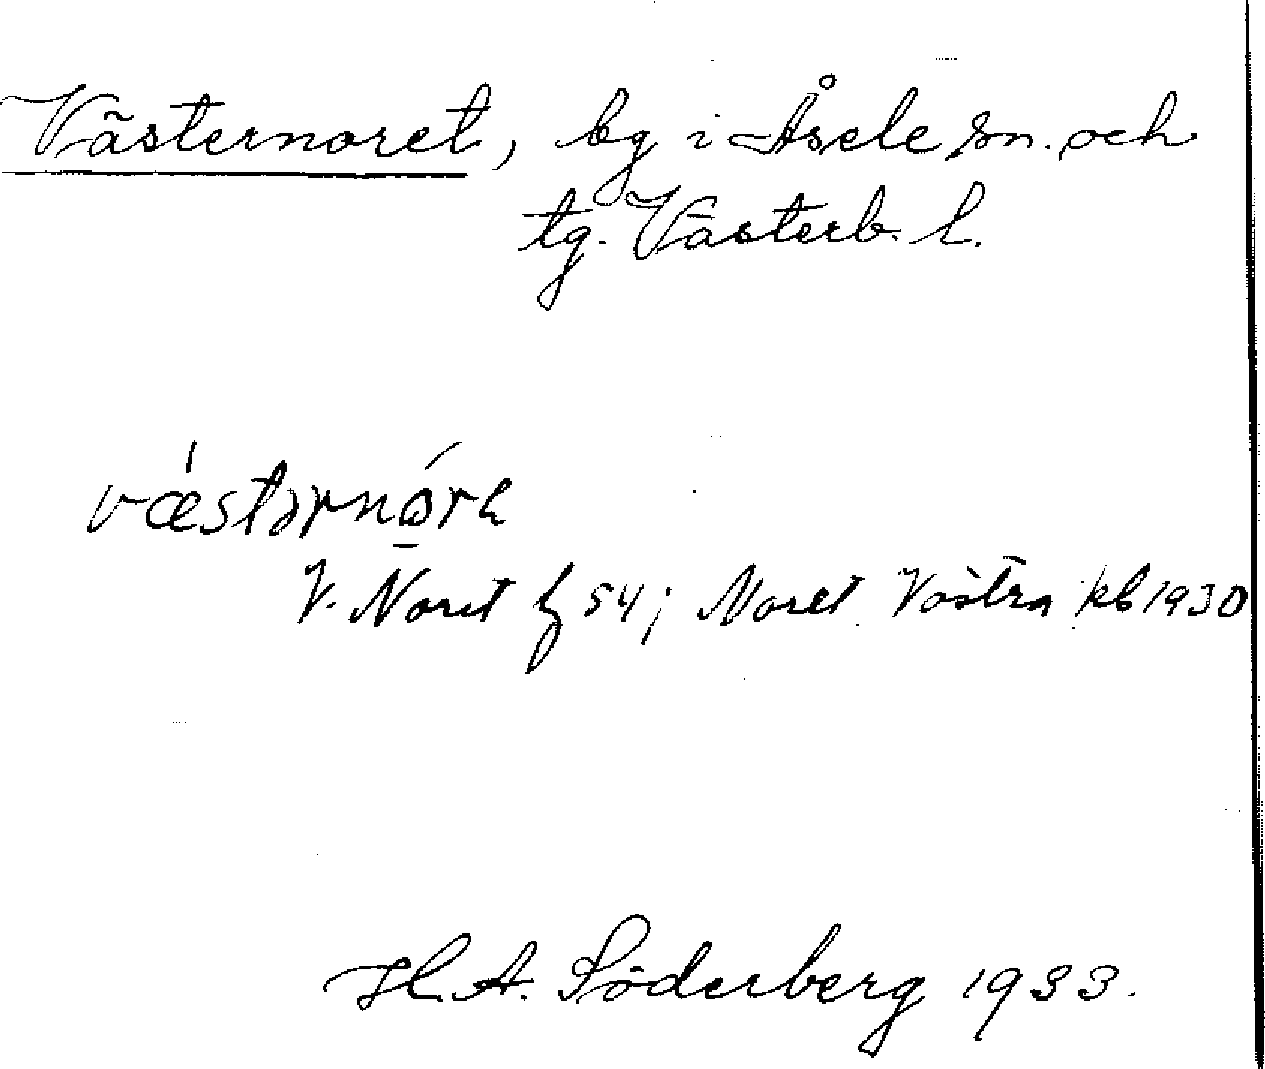 Västernoret, by i Åsele sn. och
tg. Västerb. l.
væ̀stərnǿ̱ra
V. Noret Z 54; Noret Västra kb 1930
H. A. Söderberg 1933.